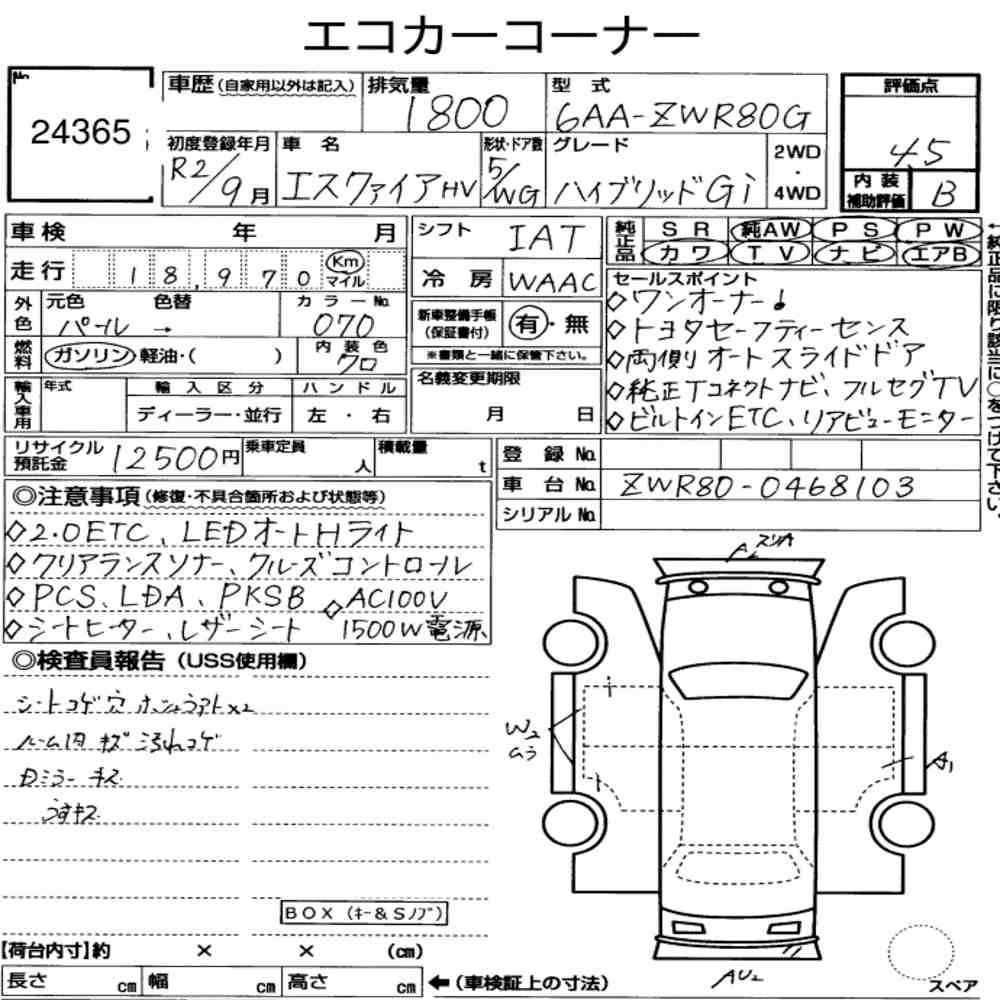 エコカーコーナー
No.
24365
車歴 (自家用以外は記入)
排気量
1800
型式
6AA-ZWR80G
評価点
4.5
初度登録年月
R2/9月
車名
エスクァイアHV
形状・ドア数
5/WG
グレード
ハイブリッドGi
2WD
・
4WD
内装
補助評価
B
車検 年 月
走行 118,970 Km マイル
シフト
IAT
冷房
WAAC
純正品
SR 純AW PS PW
カワ TV ナビ エアB
←純正品に限り該当に○をつけて下さい。
外色
元色 色替
パール →
カラーNo.
070
燃料
ガソリン・軽油・( )
内装色
70
新車整備手帳
(保証書付)
有・無
※書類と一緒に保管下さい。
セールスポイント
◇ワンオーナー!
◇トヨタセーフティーセンス
◇両側オートスライドドア
◇純正Tコネクトナビ、フルセグTV
◇ビルトインETC、リアビューモニター
輸入車用
年式
輸入区分
ディーラー・並行
ハンドル
左・右
名義変更期限
月 日
リサイクル
預託金
12500円
乗車定員
人
積載量
t
登録No.
車台No.
ZWR80-0468103
シリアルNo.
◎注意事項(修復・不具合箇所および状態等)
◇2.0ETC、LEDオートHライト
◇クリアランスソナー、クルーズコントロール
◇PCS、LDA、PKSB ◇AC100V
◇シートヒーター、レザーシート 1500W電源
◎検査員報告(USS使用欄)
シートコゲ穴
ルーム内キズ汚れコゲ
Dミラーキズ
うすキズ
BOX (キー&Sノブ)
【荷台内寸】約 × × (cm)
長さ cm 幅 cm 高さ cm ←(車検証上の寸法)
W2
ムラ
A1
AU2
スペア